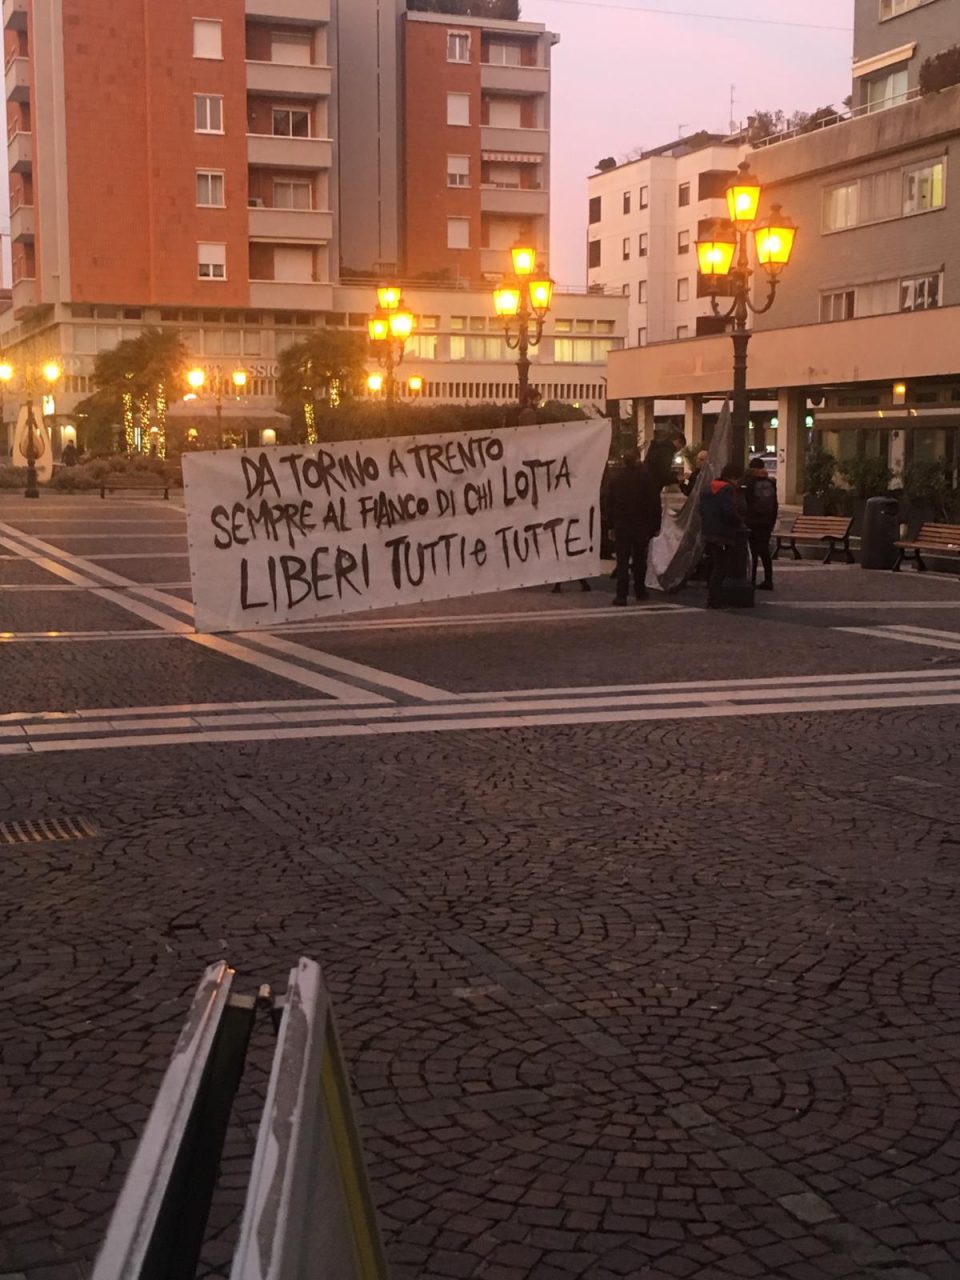 DA TORINO A TRENTO
SEMPRE AL FIANCO DI CHI LOTTA
LIBERI TUTTI e TUTTE!